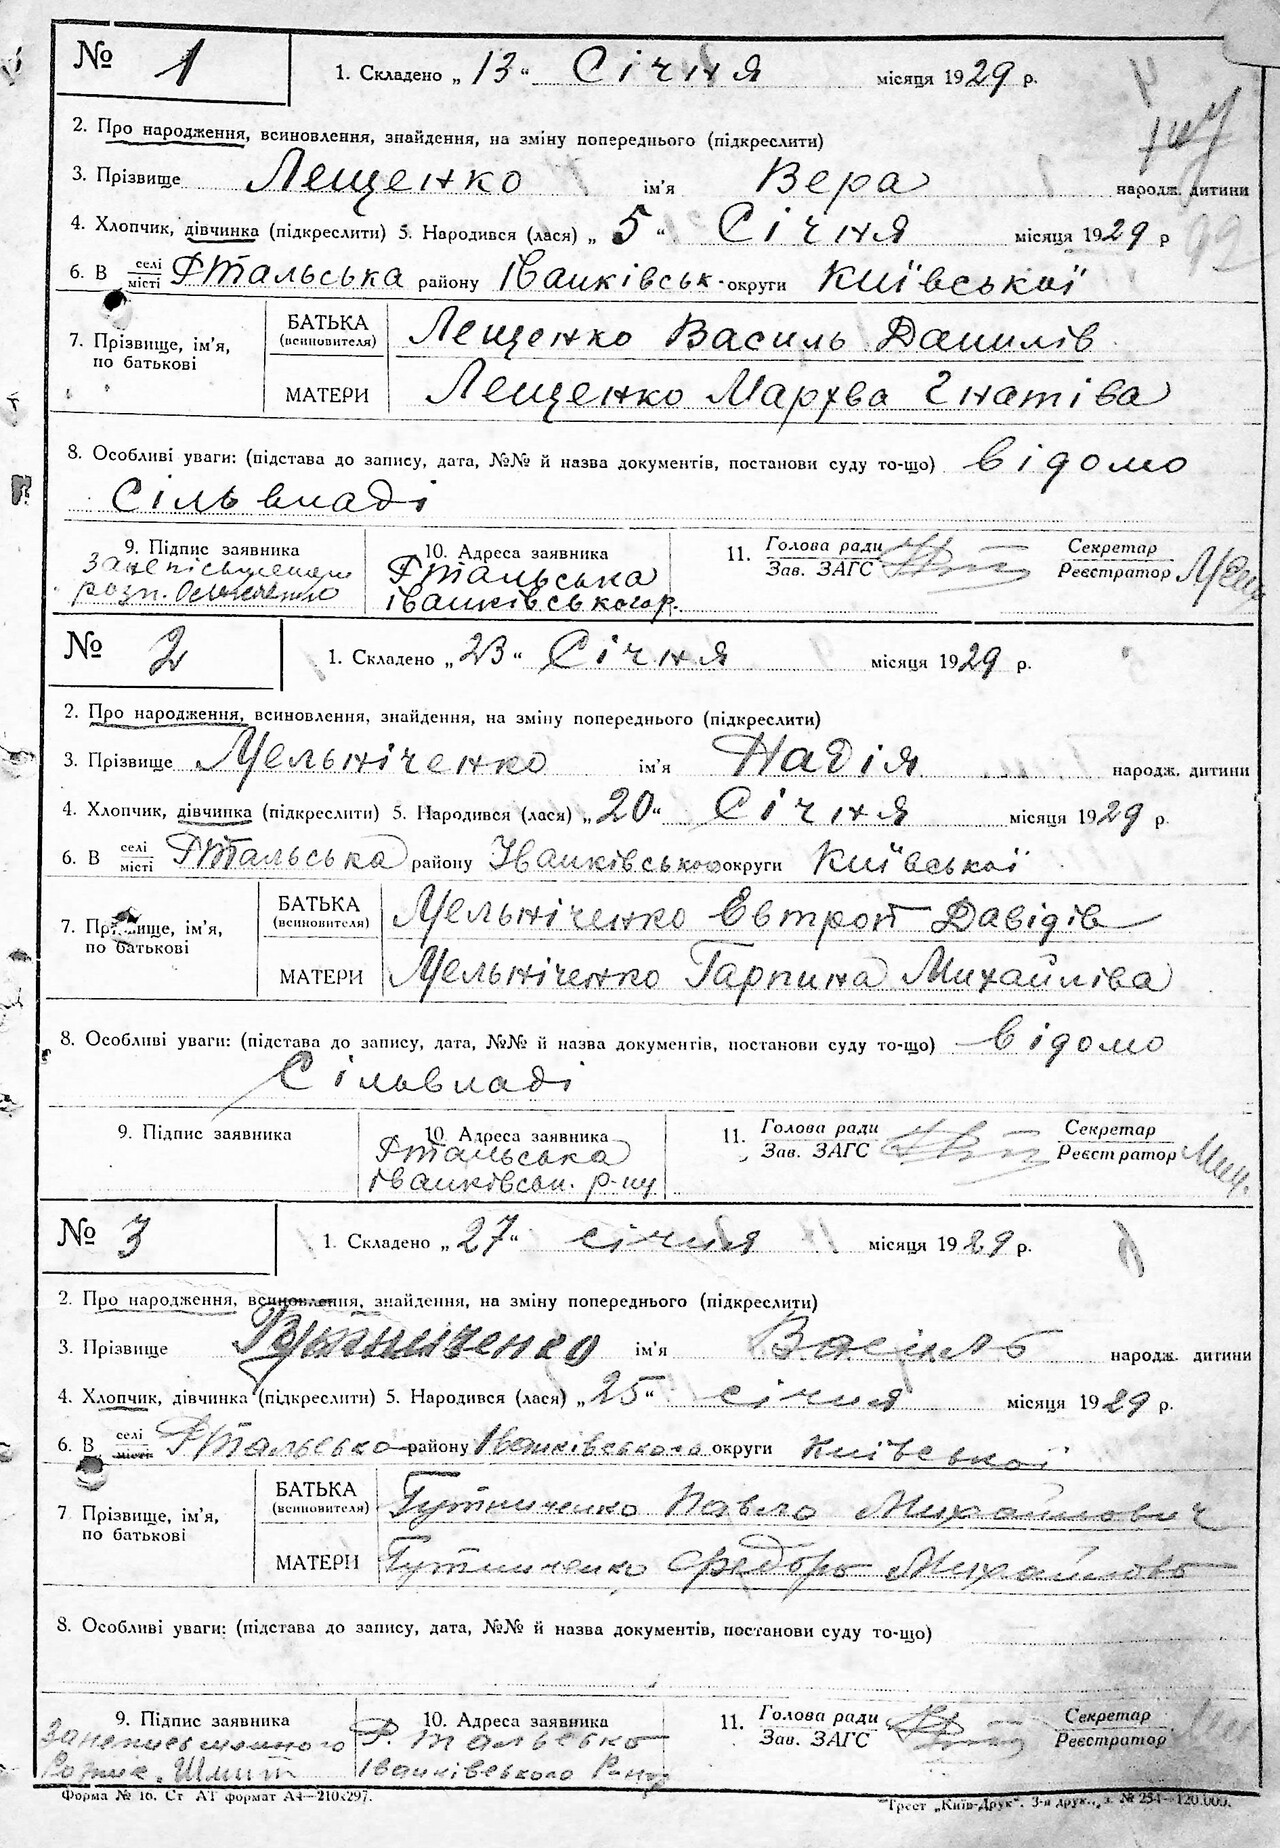 № 1 1. Складено „13“ Січня місяця 1929 р.
2. Про народження, всиновлення, знайдення, на зміну попереднього (підкреслити)
3. Прізвище Лещенко ім'я Вера народж. дитини
4. Хлопчик, дівчинка (підкреслити) 5. Народився (лася) „5“ Січня місяця 1929 р
99
6. В селі місті Ртальська району Іванківськ. округи Київської
7. Прізвище, ім'я, по батькові
БАТЬКА (всиновителя) Лещенко Василь Данилів
МАТЕРИ Лещенко Мархва Гнатіва
8. Особливі уваги: (підстава до запису, дата, №№ й назва документів, постанови суду то-що) відомо
Сільвладі
9. Підпис заявника 10. Адреса заявника 11. Голова ради Зав. ЗАГС Секретар Реєстратор
за неписьменну Ртальська
розп. Іванківського р.
№ 2 1. Складено „23“ Січня місяця 1929 р.
2. Про народження, всиновлення, знайдення, на зміну попереднього (підкреслити)
3. Прізвище Мельніченко ім'я Надія народж. дитини
4. Хлопчик, дівчинка (підкреслити) 5. Народився (лася) „20“ Січня місяця 1929 р.
6. В селі місті Ртальська району Іванківського округи Київської
7. Прізвище, ім'я, по батькові
БАТЬКА (всиновителя) Мельніченко Євтроп Давідів
МАТЕРИ Мельніченко Гарпина Михайліва
8. Особливі уваги: (підстава до запису, дата, №№ й назва документів, постанови суду то-що) відомо
Сільвладі
9. Підпис заявника 10. Адреса заявника 11. Голова ради Зав. ЗАГС Секретар Реєстратор
Ртальська
Іванківськ. р-ну
№ 3 1. Складено „27“ січня місяця 1929 р.
2. Про народження, всиновлення, знайдення, на зміну попереднього (підкреслити)
3. Прізвище Гутниченко ім'я Василь народж. дитини
4. Хлопчик, дівчинка (підкреслити) 5. Народився (лася) „25“ січня місяця 1929 р.
6. В селі місті Ртальсько району Іванківського округи Київської
7 Прізвище, ім'я, по батькові
БАТЬКА (всиновителя) Гутниченко Павло Михайлович
МАТЕРИ Гутниченко Федора Михайлово
8. Особливі уваги: (підстава до запису, дата, №№ й назва документів, постанови суду то-що)
9. Підпис заявника 10. Адреса заявника 11. Голова ради Зав. ЗАГС Секретар Реєстратор
За неписьменного Р. тальсько
Розпис. Шмит Іванківського Району
Форма № 16. Ст АТ формат А4—210x297. Трест „Київ-Друк“. 3-я друк., з. № 254—120.000.